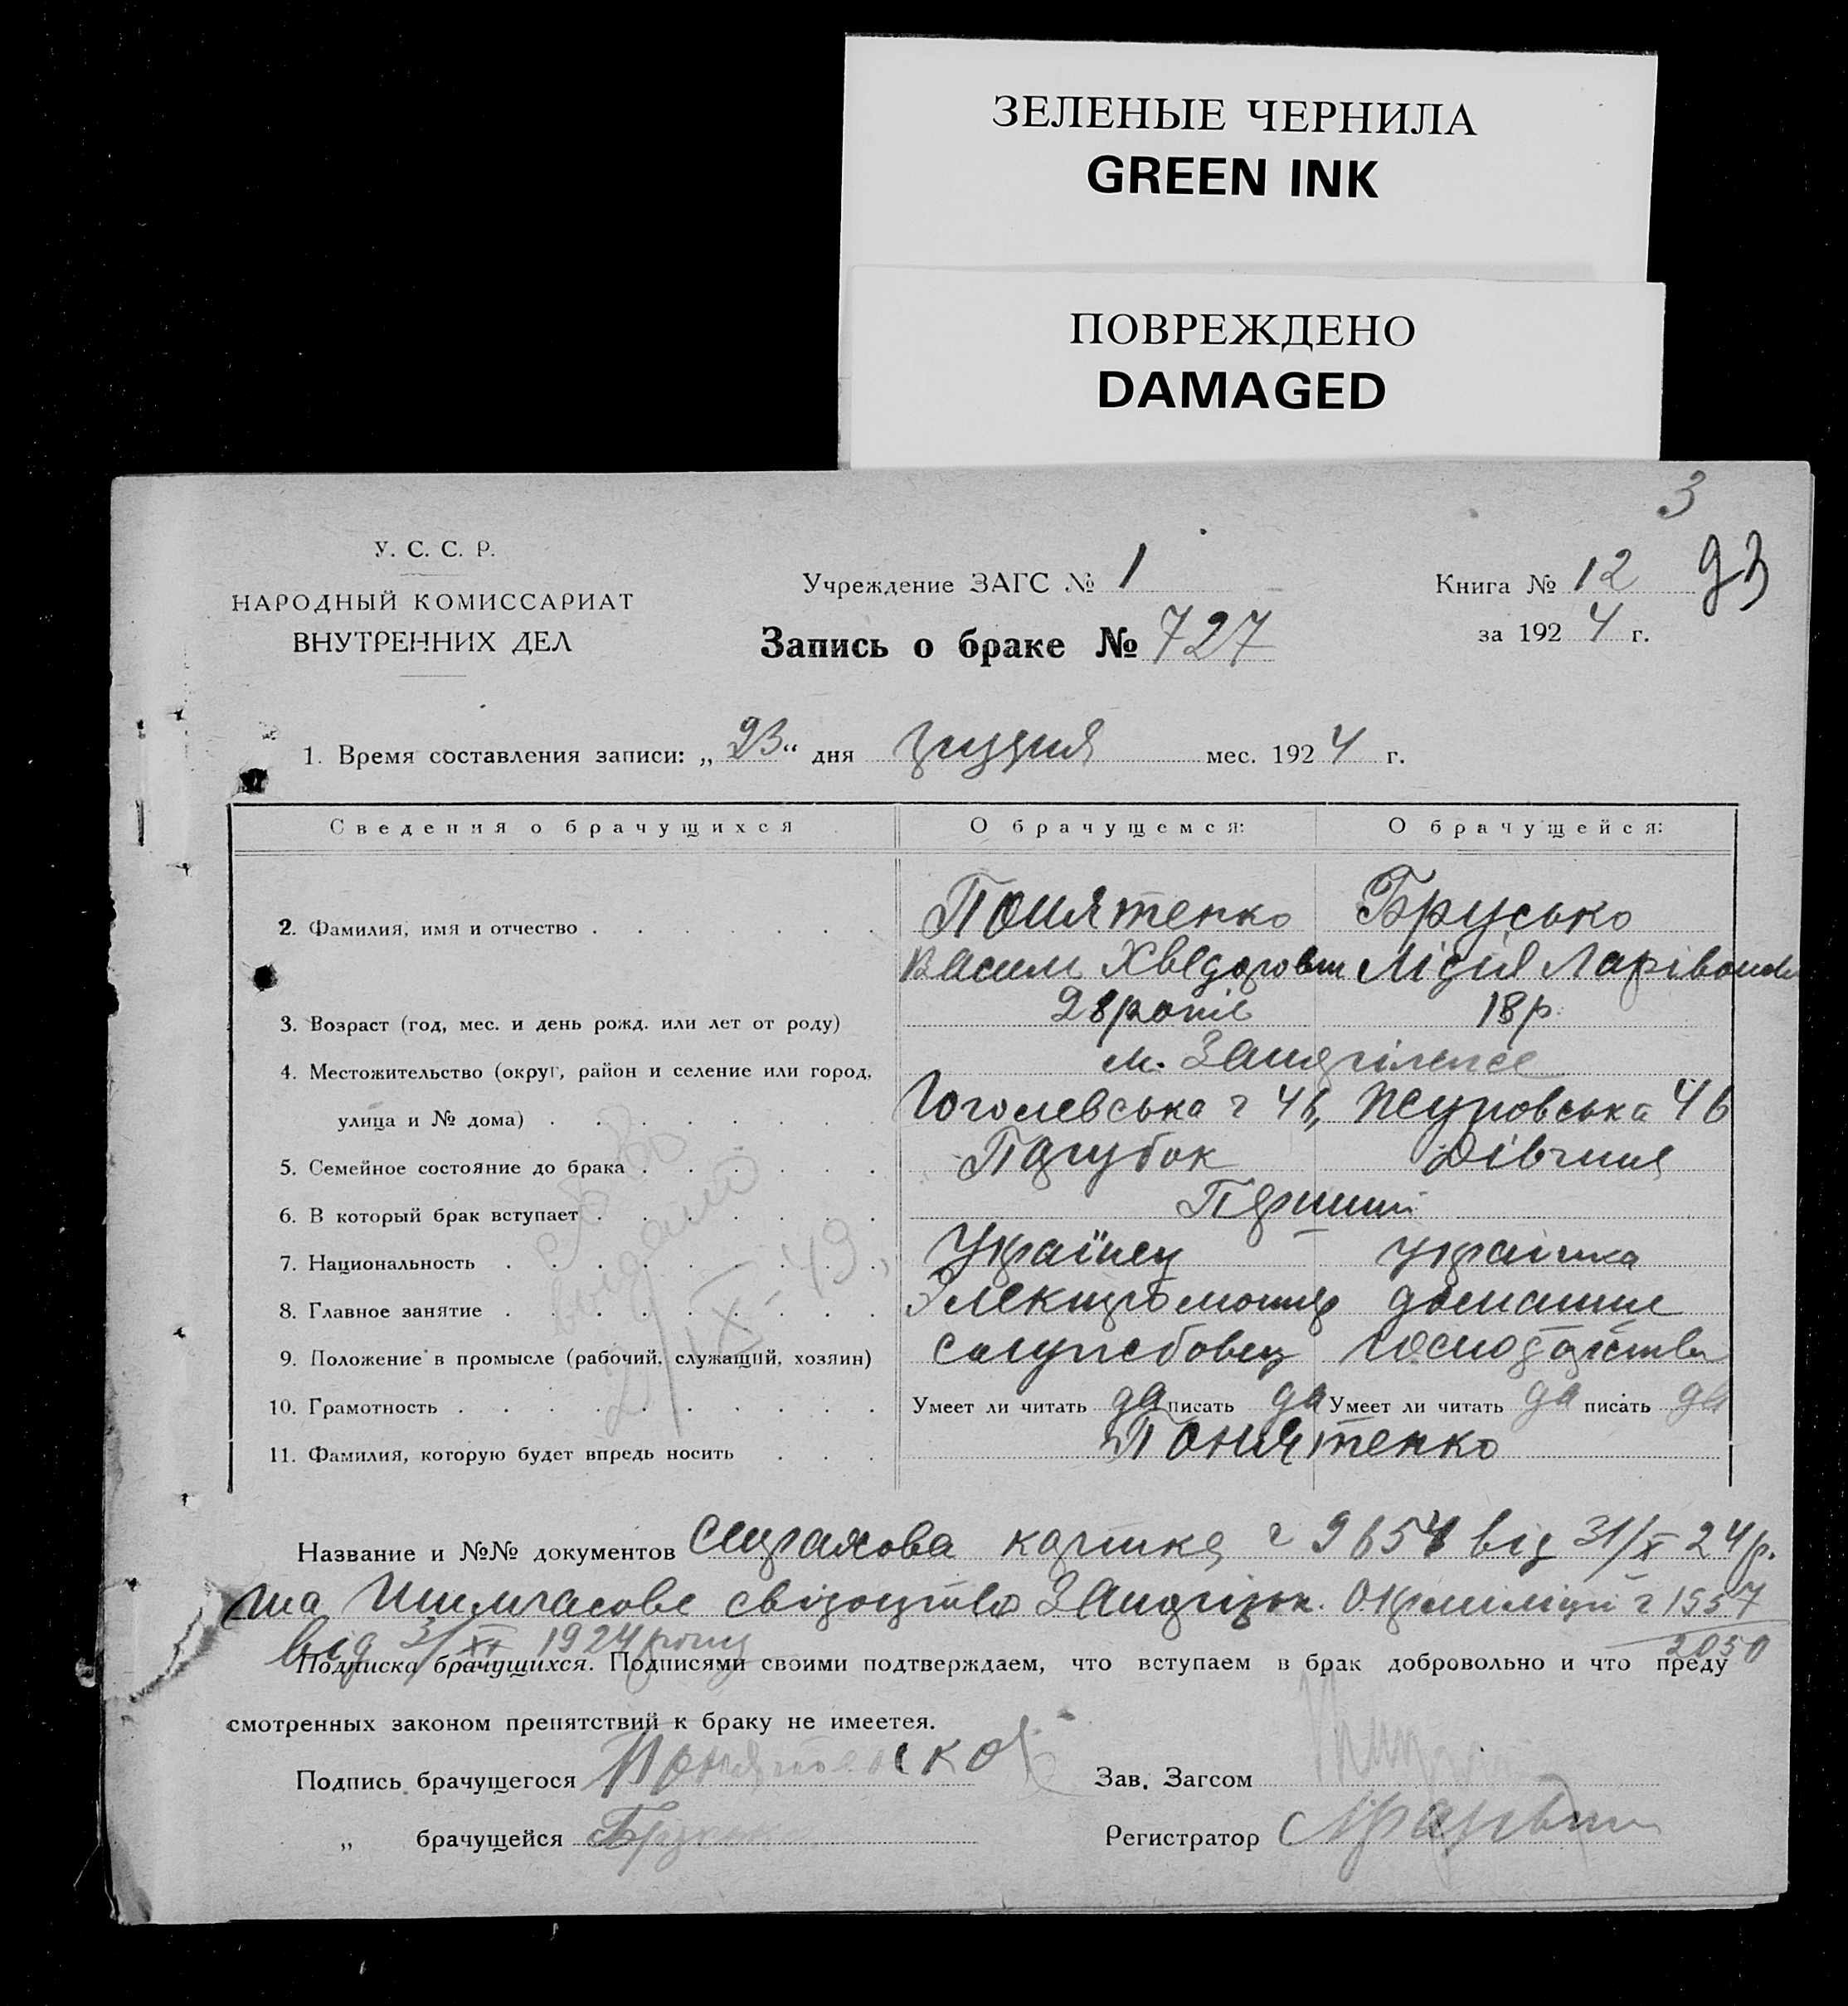 ЗЕЛЕНЫЕ ЧЕРНИЛА
GREEN INK
ПОВРЕЖДЕНО
DAMAGED
3
93
У. С. С. Р.
НАРОДНЫЙ КОМИССАРИАТ
ВНУТРЕННИХ ДЕЛ
Учреждение ЗАГС № 1
Запись о браке № 727
Книга № 12
за 1924 г.
1. Время составления записи: „23“ дня грудня мес. 1924 г.
Сведения о брачущихся О брачущемся: О брачущейся:
2. Фамилия, имя и отчество Понятенко Брусько
Василь Хведорович Лідія Ларівоновн
3. Возраст (год, мес. и день рожд. или лет от роду) 28 років 18 р.
4. Местожительство (округ, район и селение или город, м.
улица и № дома) Гоголевська ч 46, Жуковська 46
5. Семейное состояние до брака Парубок Дівчина
6. В который брак вступает Перший
7. Национальность Українец українка
8. Главное занятие Электромонтер домашне
9. Положение в промысле (рабочий, служащий, хозяин) служебовец господарство
10. Грамотность Умеет ли читать да писать да Умеет ли читать да писать да
11. Фамилия, которую будет впредь носить Понятенко
видано
2/IX-49
Название и №№ документов Страхова картка ч 9654 від 31/X 24 р.
та тимчасове свідоцтво ч 1557
2050
від 1924 року
Подписка брачущихся. Подписями своими подтверждаем, что вступаем в брак добровольно и что преду
смотренных законом препятствий к браку не имеется.
Подпись брачущегося Понятенко
Зав. Загсом
„ брачущейся Брусько
Регистратор